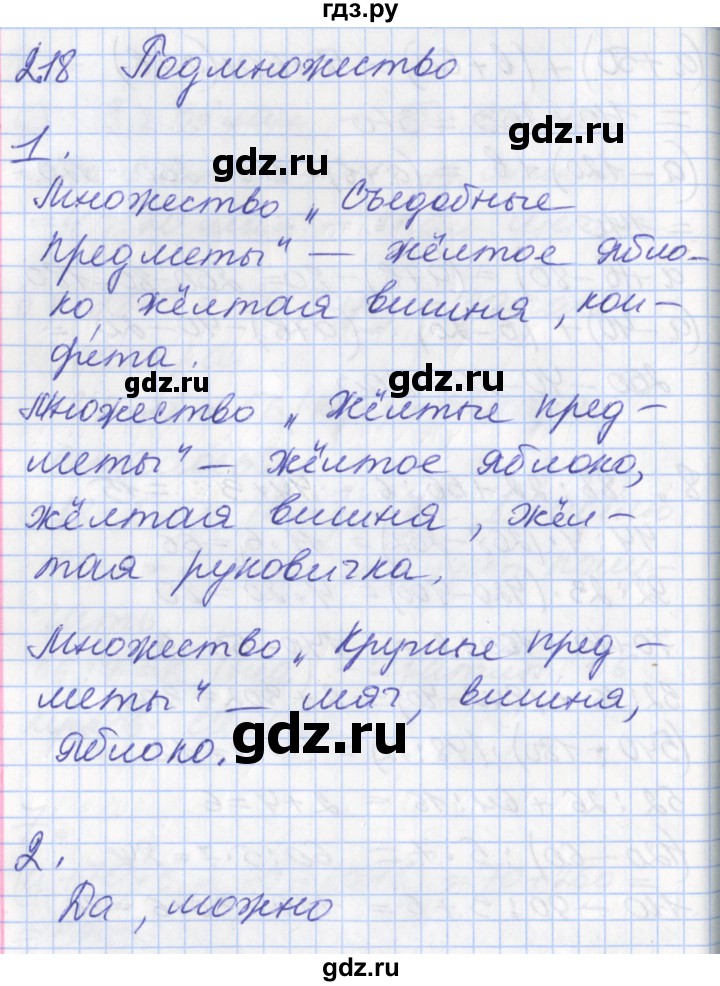 гдз.ру
2.18 Подмножество
gdz.ru gdz.ru
1.
Множество „Съедобные
предметы" — жёлтое ябло-
ко жёлтая вишня, кон-
фета.
gdz.ru gdz.ru
Множество „Жёлтые пред-
меты" — жёлтое яблоко,
жёлтая вишня, жёл-
тая руковичка.
Множество „Круглые пред-
меты" — мяч, вишня,
яблоко.
gdz.ru
2.
Да, можно
gdz.ru